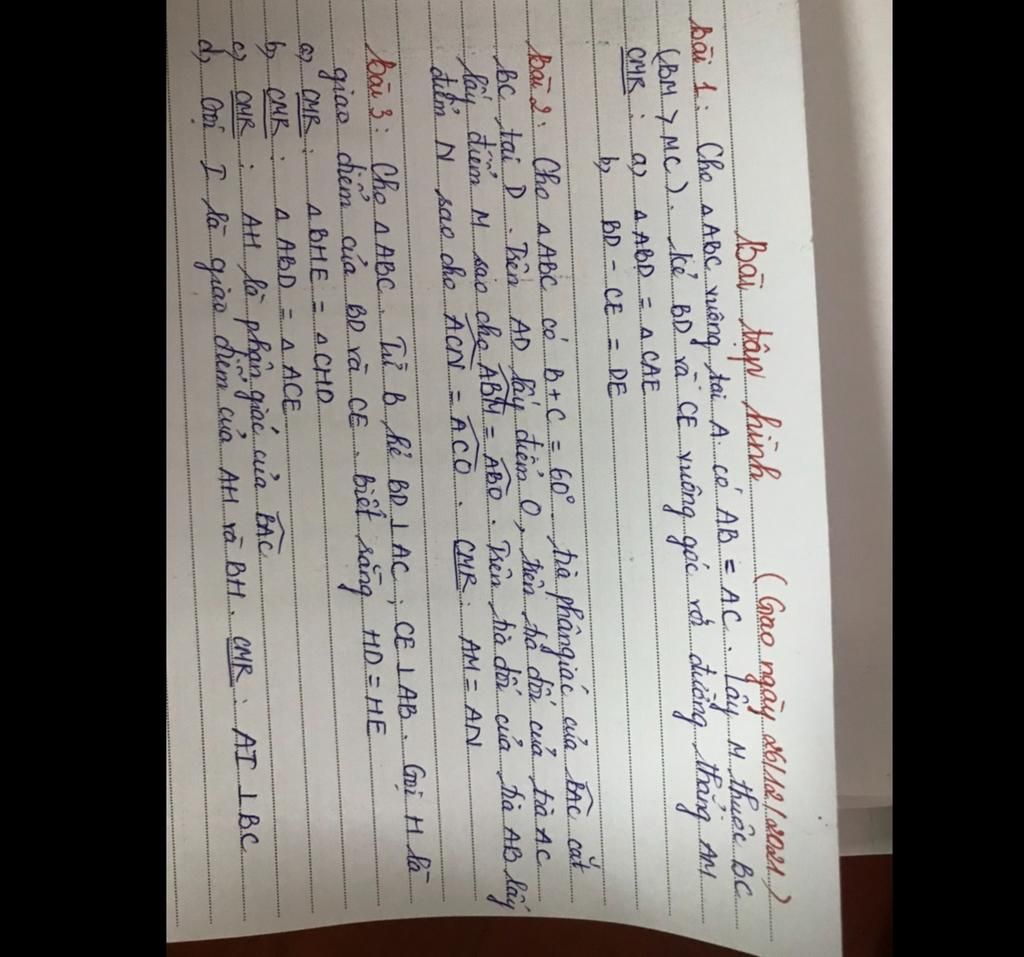 Bài tập hình (Giao ngày 26/12/2021)
Bài 1: Cho ΔABC vuông tại A. có AB = AC. Lấy M thuộc BC
(BM > MC). kẻ BD và CE vuông góc với đường thẳng AM
CMR: a) ΔABD = ΔCAE
b) BD - CE = DE
Bài 2: Cho ΔABC có B + C = 60°. tia phân giác của \widehat{BAC} cắt
BC tại D. Trên AD lấy điểm O, trên tia đối của tia AC
lấy điểm M sao cho \widehat{ABM} = \widehat{ABO}. Trên tia đối của tia AB lấy
điểm N sao cho \widehat{ACN} = \widehat{ACO}. CMR: AM = AN
Bài 3: Cho ΔABC. Từ B kẻ BD ⊥ AC; CE ⊥ AB. Gọi H là
giao điểm của BD và CE. biết rằng HD = HE
a) CMR: ΔBHE = ΔCHD
b) CMR: ΔABD = ΔACE
c) CMR: AH là phân giác của \widehat{BAC}
d) Gọi I là giao điểm của AH và BH. CMR: AI ⊥ BC